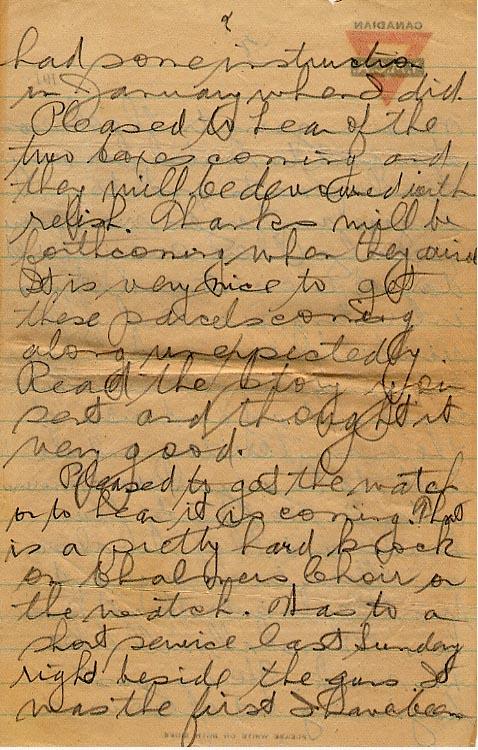 2
had some instruction
in January when I did.
Pleased to hear of the
two boxes coming and
they will be devoured with
relish. Thanks will be
forthcoming when they arrive
It is very nice to get
these parcels coming
along unexpectedly.
Read the story you
sent and thought it
very good.
Pleased to get the watch
or to hear it is coming. That
is a pretty hard knock
on Chalmers Choir or
the watch. Was to a
short service last Sunday
right beside the guns It
was the first I have been
CANADIAN
PLEASE WRITE ON BOTH SIDES